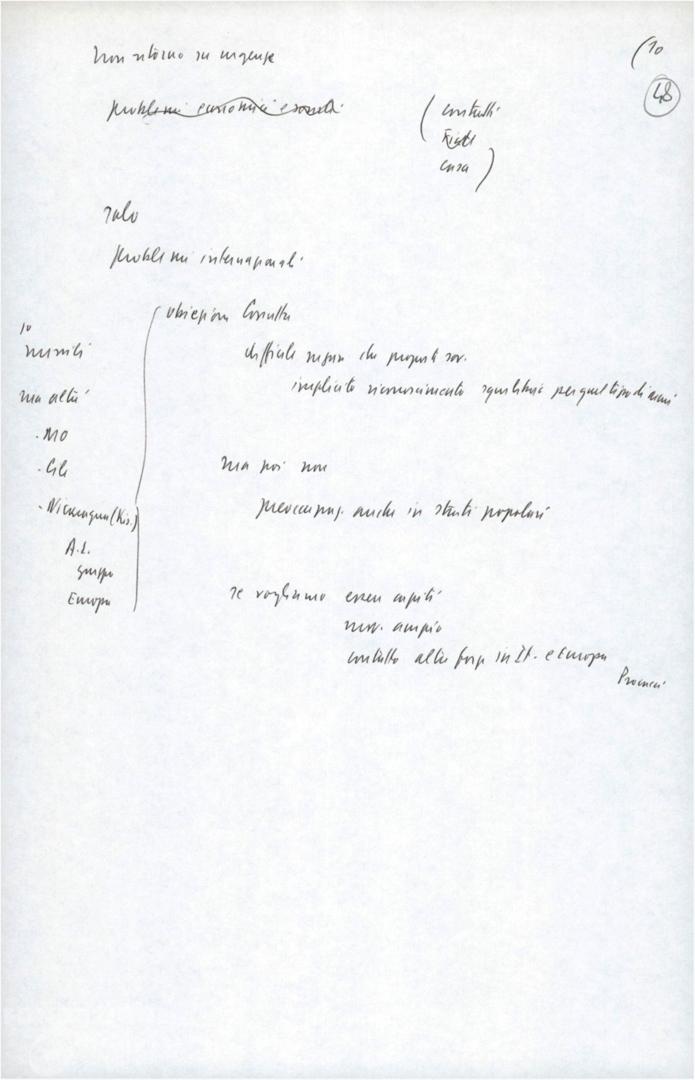 (10
Non ritorno su urgenze
48
problemi economici e sociali
(contratti
Fiat
casa)
solo
problemi internazionali
obiezione Cossutta
10
missili
difficile negare che proposte sov.
implicito riconoscimento squilibrio per quel tipo di armi
ma altri
. MO
ma poi non
. Cile
. Nicaragua (Kis.)
preoccupaz. anche in strati popolari
A.L.
gruppo
Europa
se vogliamo essere capiti
mov. ampio
contatto altre forze in It. e Europa